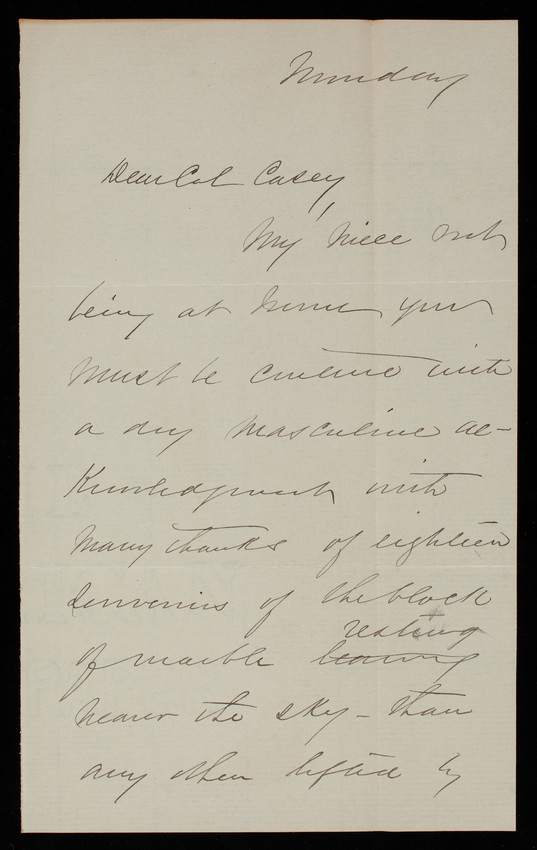 Monday
Dear Col Casey,
My niece not
being at home you
must be content with
a dry masculine ac-
knowledgment with
many thanks of eighteen
souvenirs of the block
resting
of marble leaning
nearer the sky - than
any other lifted by